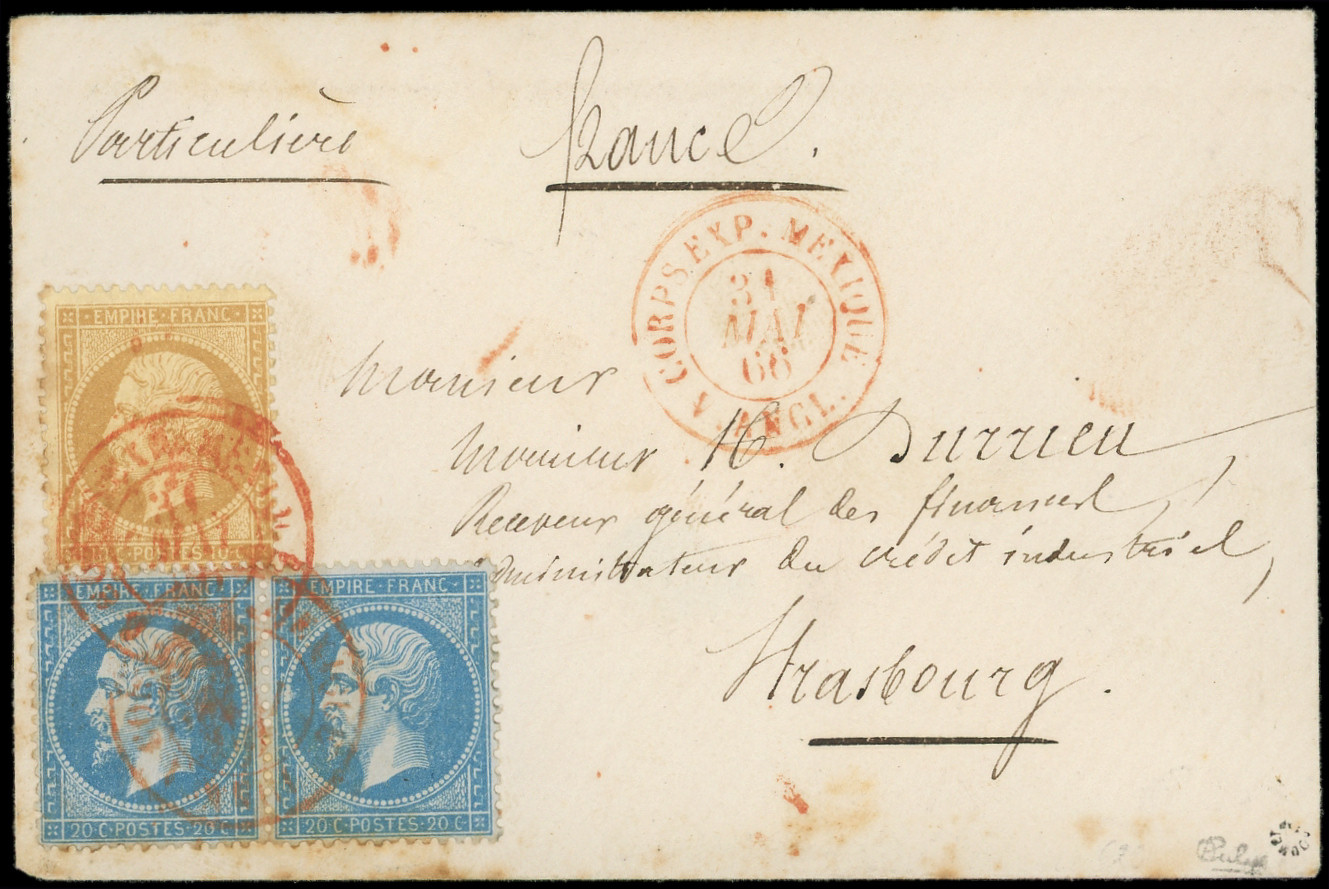 Particulière
France.
CORPS EXP. MEXIQUE
31
MAI
66
ANGL.
EMPIRE · FRANC ·
10 C · POSTES · 10 C
Monsieur
Monsieur H. Durrieu
Receveur général des finances,
administrateur du crédit industriel,
Strasbourg.
EMPIRE · FRANC ·
20 · C · POSTES · 20 C
EMPIRE · FRANC ·
20 · C · POSTES · 20 C